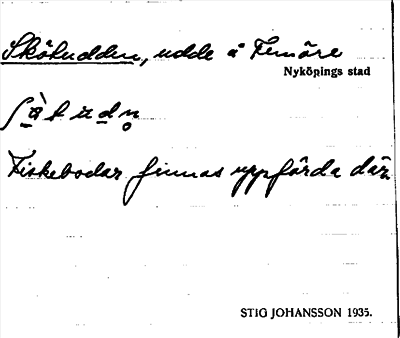 Skötudden, udde å Femöre
Nyköpings stad
Fiskebodar finnas uppförda där
STIG JOHANSSON 1935.